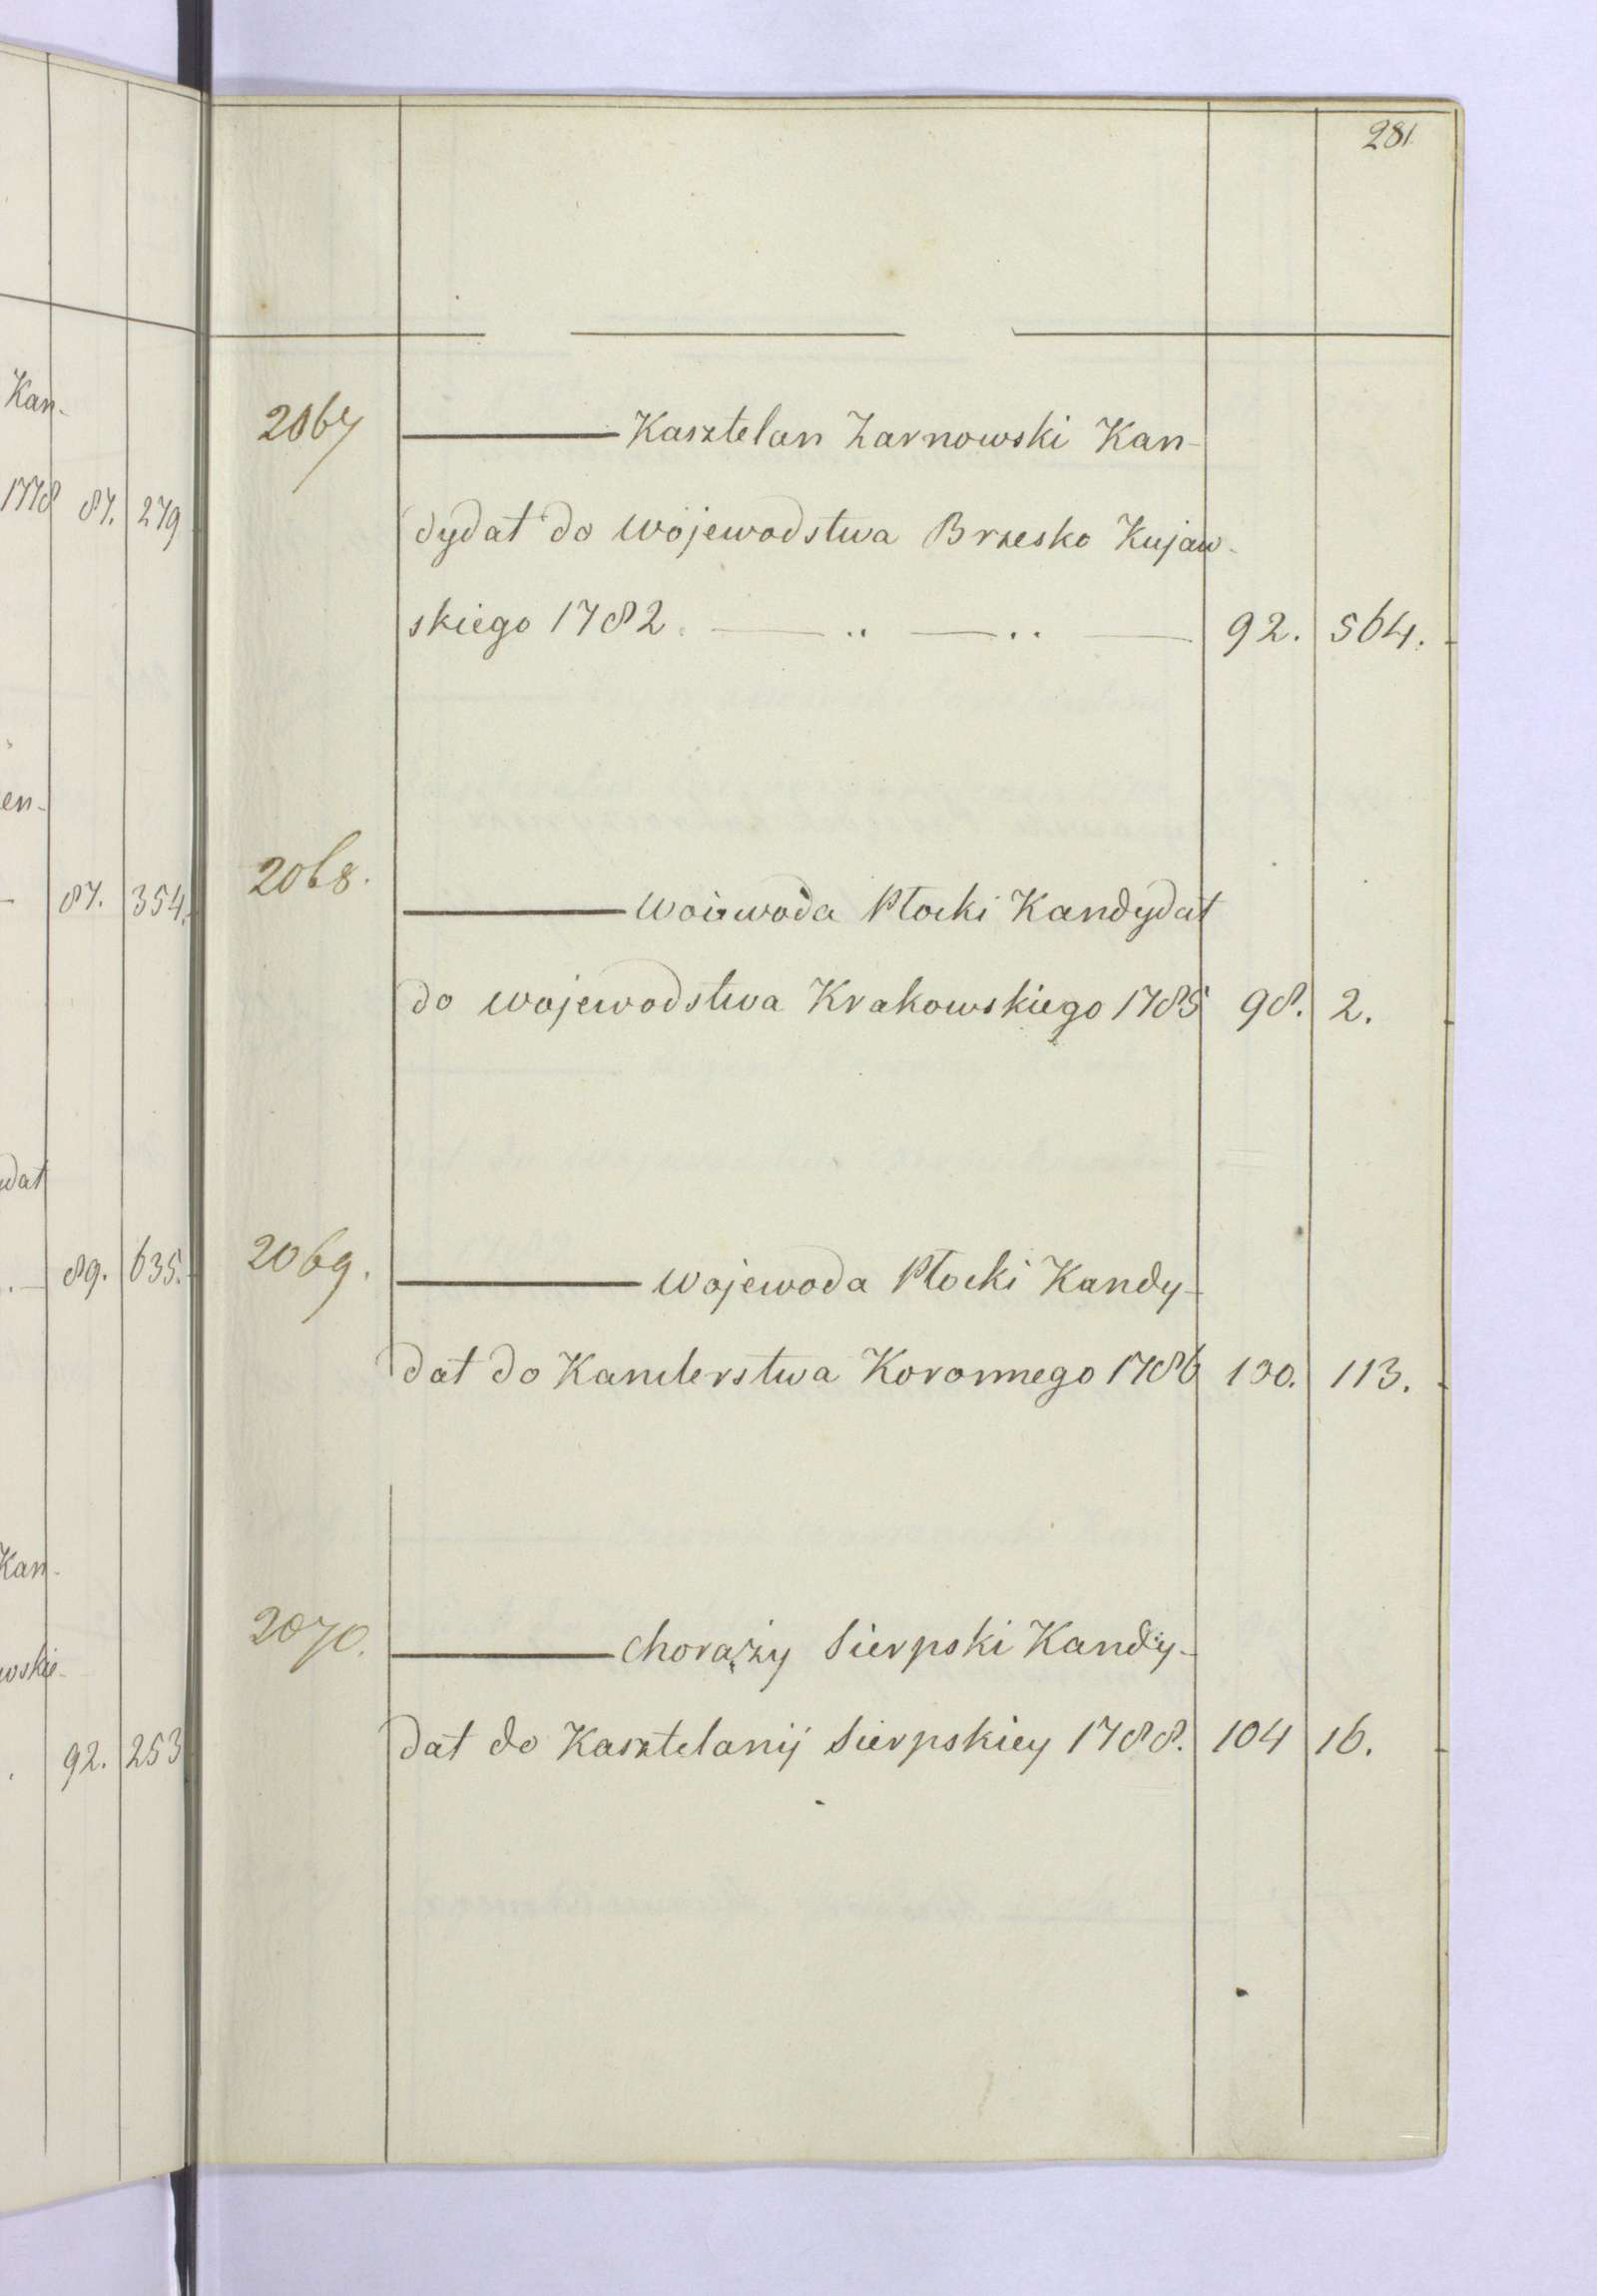 281
Kan-
1778 87. 279
en-
87. 354.
dat
89. 635.
Kan-
wskie-
92. 253
2067 Kasztelan Zarnowski Kan-
dydat do Wojewodstwa Brzesko Kujaw-
skiego 1782. 92. 564.
2068. Woiewoda Płocki Kandydat
do Wojewodstwa Krakowskiego 1785 98. 2.
2069. Wojewoda Płocki Kandy-
dat do Kanclerstwa Koronnego 1786 100. 113.
2070. Chorąży Sierpski Kandy-
dat do Kasztelanij Sierpskiey 1788. 104 16.